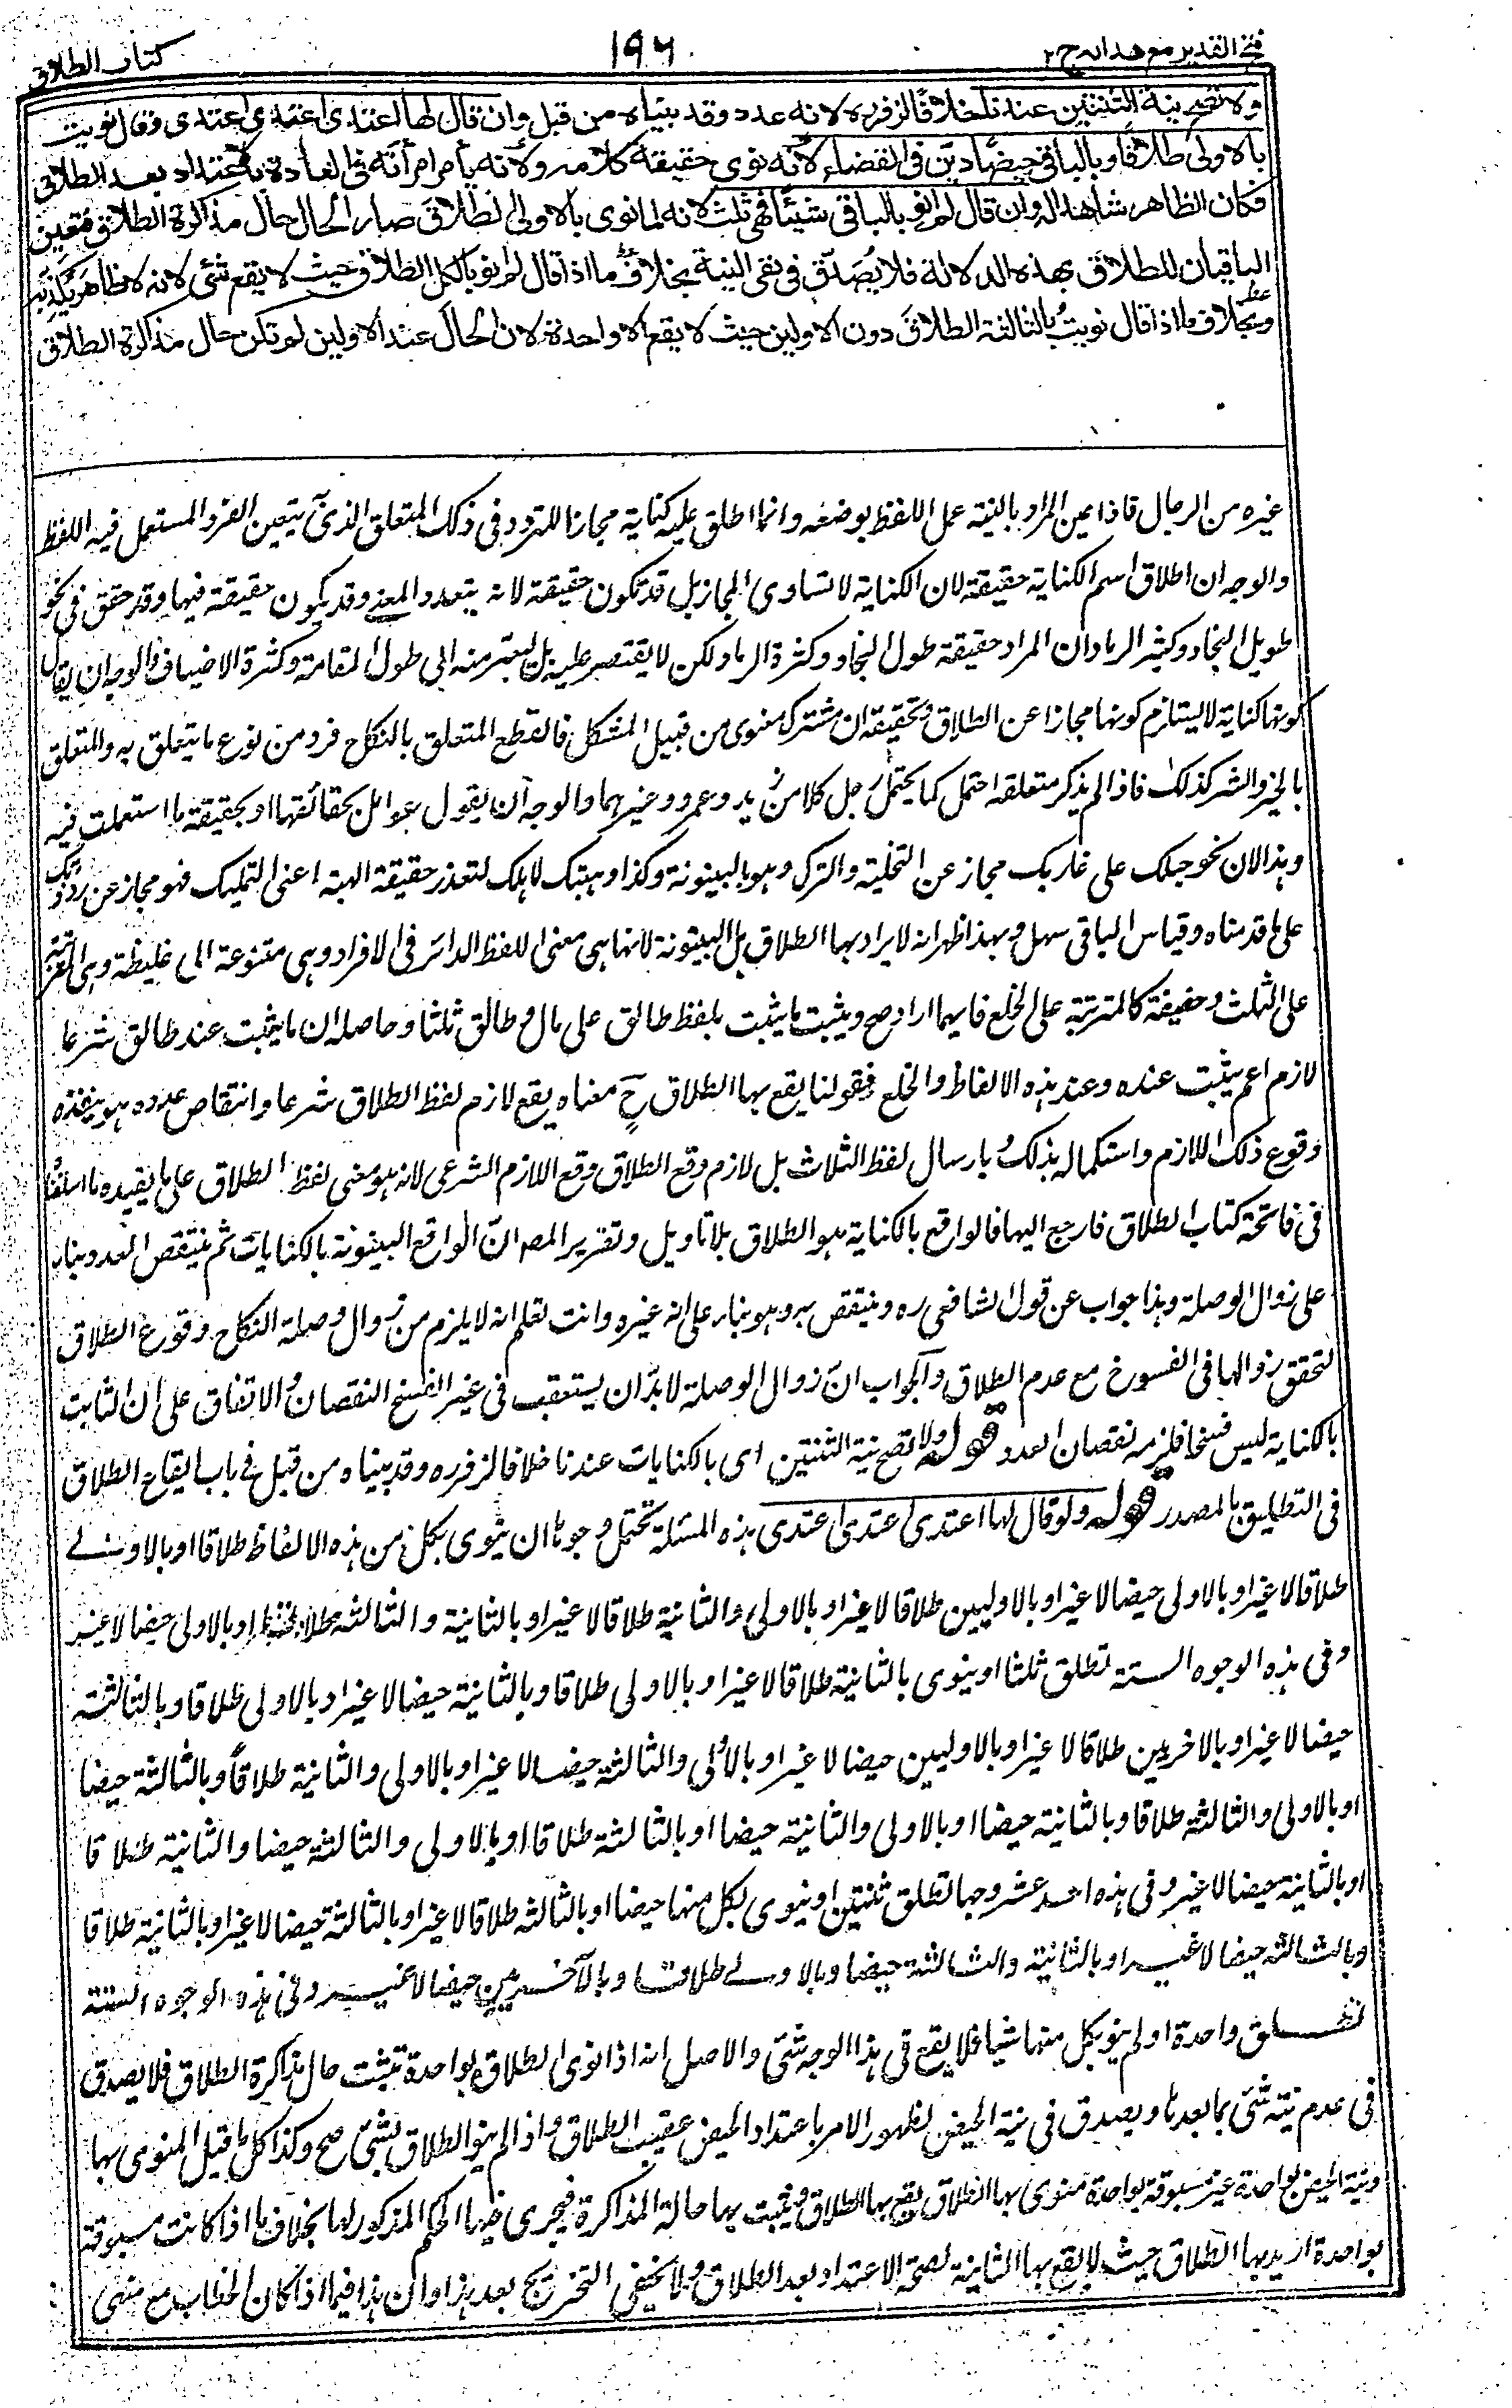 فتح القدير مع هدايه ج ٢
١٩٦
كتاب الطلاق
ولا تصح نية الثنتين عندنا خلافا لزفر ره لانه عدد وقد بيناه من قبل وان قال لها اعتدى اعتدى اعتدى وقال نويت
بالاولى طلاقا وبالباقى حيضا دين فى القضاء لانه نوى حقيقة كلامه ولانه يأمر امرأته فى العادة بالاعتداد بعد الطلاق
فكان الظاهر شاهدا له وان قال لم انو بالباقى شيئا فهى ثلث لانه لما نوى بالاولى الطلاق صار الحال حال مذاكرة الطلاق فتعين
الباقيان للطلاق بهذه الدلالة فلا يصدق فى نفى النية بخلاف ما اذا قال لم انو بالكل الطلاق حيث لا يقع شئ لانه لا ظاهر يكذبه
وبخلاف ما اذا قال نويت بالثالثة الطلاق دون الاوليين حيث لا يقع الا واحدة لان الحال عند الاوليين لم تكن حال مذاكرة الطلاق
غيره من الرجال فاذا عين المراد بالنية عمل اللفظ بوضعه وانما اطلق عليه كناية مجازا للتردد فى ذلك المتعلق الذى يتعين الفرد المستعمل فيه اللفظ
والوجه ان اطلاق اسم الكناية حقيقة لان الكناية لا تساوى المجاز بل قد تكون حقيقة لانه بتعدد المعنى وقد يكون حقيقة فيها وقد حقق فى نحو
طويل النجاد وكثير الرماد ان المراد حقيقة طول النجاد وكثرة الرماد لكن لا يقتصر عليه بل ليعبر منه الى طول القامة وكثرة الاضياف فالوجه ان يقال
كونها كناية لا يستلزم كونها مجازا عن الطلاق وتحقيقه ان مشترك معنوى من قبيل المشكل فالقطع المتعلق بالنكاح فرد من نوع ما يتعلق به والمتعلق
بالخير والشر كذلك فاذا لم يذكر متعلقه احتمل كما يحتمل رجل كلا من زيد وعمرو وغيرهما والوجه ان يقول عوامل بحقائقها او بحقيقة ما استعملت فيه
وهذا لان نحو حبلك على غاربك مجاز عن التخلية والترك وهو بالبينونة وكذا وهبتك لاهلك لتعذر حقيقة الهبة اعنى التمليك فهو مجاز عن رددتك
على ما قدمناه وقياس الباقى سهل وبهذا ظهر انه لا يراد بها الطلاق بل البينونة لانها هى معنى اللفظ الدائر فى الافراد وهى متنوعة الى غليظة وهى المترتبة
على الثلث وخفيفة كالمترتبة على الخلع فايهما اراد صح ويثبت ما يثبت بلفظ طالق على مال وطالق ثلثا وحاصله ان ما يثبت عند طالق شرعا
لازم اعم يثبت عنده وعند هذه الالفاظ والخلع فقولنا يقع بها الطلاق ح معناه يقع لازم لفظ الطلاق شرعا وانتقاص عدده هو بنفذه
وقوع ذلك اللازم واستكماله بذلك بارسال لفظ الثلاث بل لازم وقع الطلاق وقع اللازم الشرعى لانه هو معنى لفظ الطلاق على ما يفيده ما اسلفناه
فى فاتحة كتاب الطلاق فارجع اليها فالواقع بالكناية هو الطلاق بلا تاويل وتقرير المص ان الواقع البينونة بالكنايات ثم ينتقص العدد بناء
على زوال الوصلة وهذا جواب عن قول الشافعى ره وينتقص به وهو بناء على انه غيره وانت تعلم انه لا يلزم من زوال وصلة النكاح وقوع الطلاق
لتحقق زوالها فى الفسوخ مع عدم الطلاق والجواب ان زوال الوصلة لا بد ان يستعقب فى غير الفسخ النقصان والاتفاق على ان الثابت
بالكناية ليس فسخا فلزمه نقصان العدد قوله ولا تصح نية الثنتين اى بالكنايات عندنا خلافا لزفر ره وقد بيناه من قبل فى باب ايقاع الطلاق
فى التطليق بالمصدر قوله ولو قال لها اعتدى اعتدى اعتدى هذه المسئلة تحتمل وجوها ان ينوى بكل من هذه الالفاظ طلاقا او بالاولى
طلاقا لا غير او بالاولى حيضا لا غير او بالاوليين طلاقا لا غير او بالاولى والثانية طلاقا لا غير او بالثانية والثالثة طلاقا لا غير او بالاولى حيضا لا غير
وفى هذه الوجوه الستة تطلق ثلثا او ينوى بالثانية طلاقا لا غير او بالاولى طلاقا وبالثانية حيضا لا غير او بالاولى طلاقا وبالثالثة
حيضا لا غير او بالاخريين طلاقا لا غير او بالاوليين حيضا لا غير او بالاولى والثالثة حيضا لا غير او بالاولى والثانية طلاقا وبالثالثة حيضا
او بالاولى والثالثة طلاقا وبالثانية حيضا او بالاولى والثانية حيضا او بالثالثة طلاقا او بالاولى والثالثة حيضا والثانية طلاقا
او بالثانية حيضا لا غير وفى هذه احد عشر وجها تطلق ثنتين او ينوى بكل منها حيضا او بالثالثة طلاقا لا غير او بالثالثة حيضا لا غير او بالثانية طلاقا
وبالثالثة حيضا لا غير او بالثانية والثالثة حيضا وبالاولى طلاقا او بالآخريين حيضا لا غير وفى هذه الوجوه الستة
تطلق واحدة او لم ينو بكل منها شيئا فلا يقع فى هذا الوجه شئ والاصل انه اذا نوى الطلاق بواحدة تثبت حال مذاكرة الطلاق فلا يصدق
فى عدم نية شئ بما بعدها ويصدق فى نية الحيض لظهور الامر باعتداد الحيض عقيب الطلاق واذا لم ينو الطلاق بشئ صح وكذا كل ما قبل المنوى بها
ونية الحيض بواحدة غير مسبوقة بواحدة منوى بها الطلاق يقع بها الطلاق ويثبت بها حالة المذاكرة فيجرى فيها الحكم المذكور لها بخلاف ما اذا كانت مسبوقة
بواحدة اريد بها الطلاق حيث لا يقع بها الثانية لصحة الاعتداد بعد الطلاق ولا يخفى التخريج بعد هذا وان هذا فيما اذا كان الخطاب مع من هى